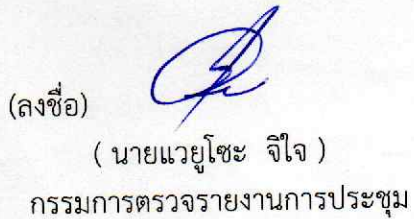 (ลงชื่อ)
( นายแวยูโซะ จิใจ )
กรรมการตรวจรายงานการประชุม